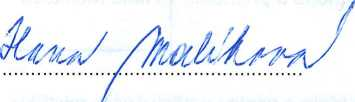 Hana Malíková